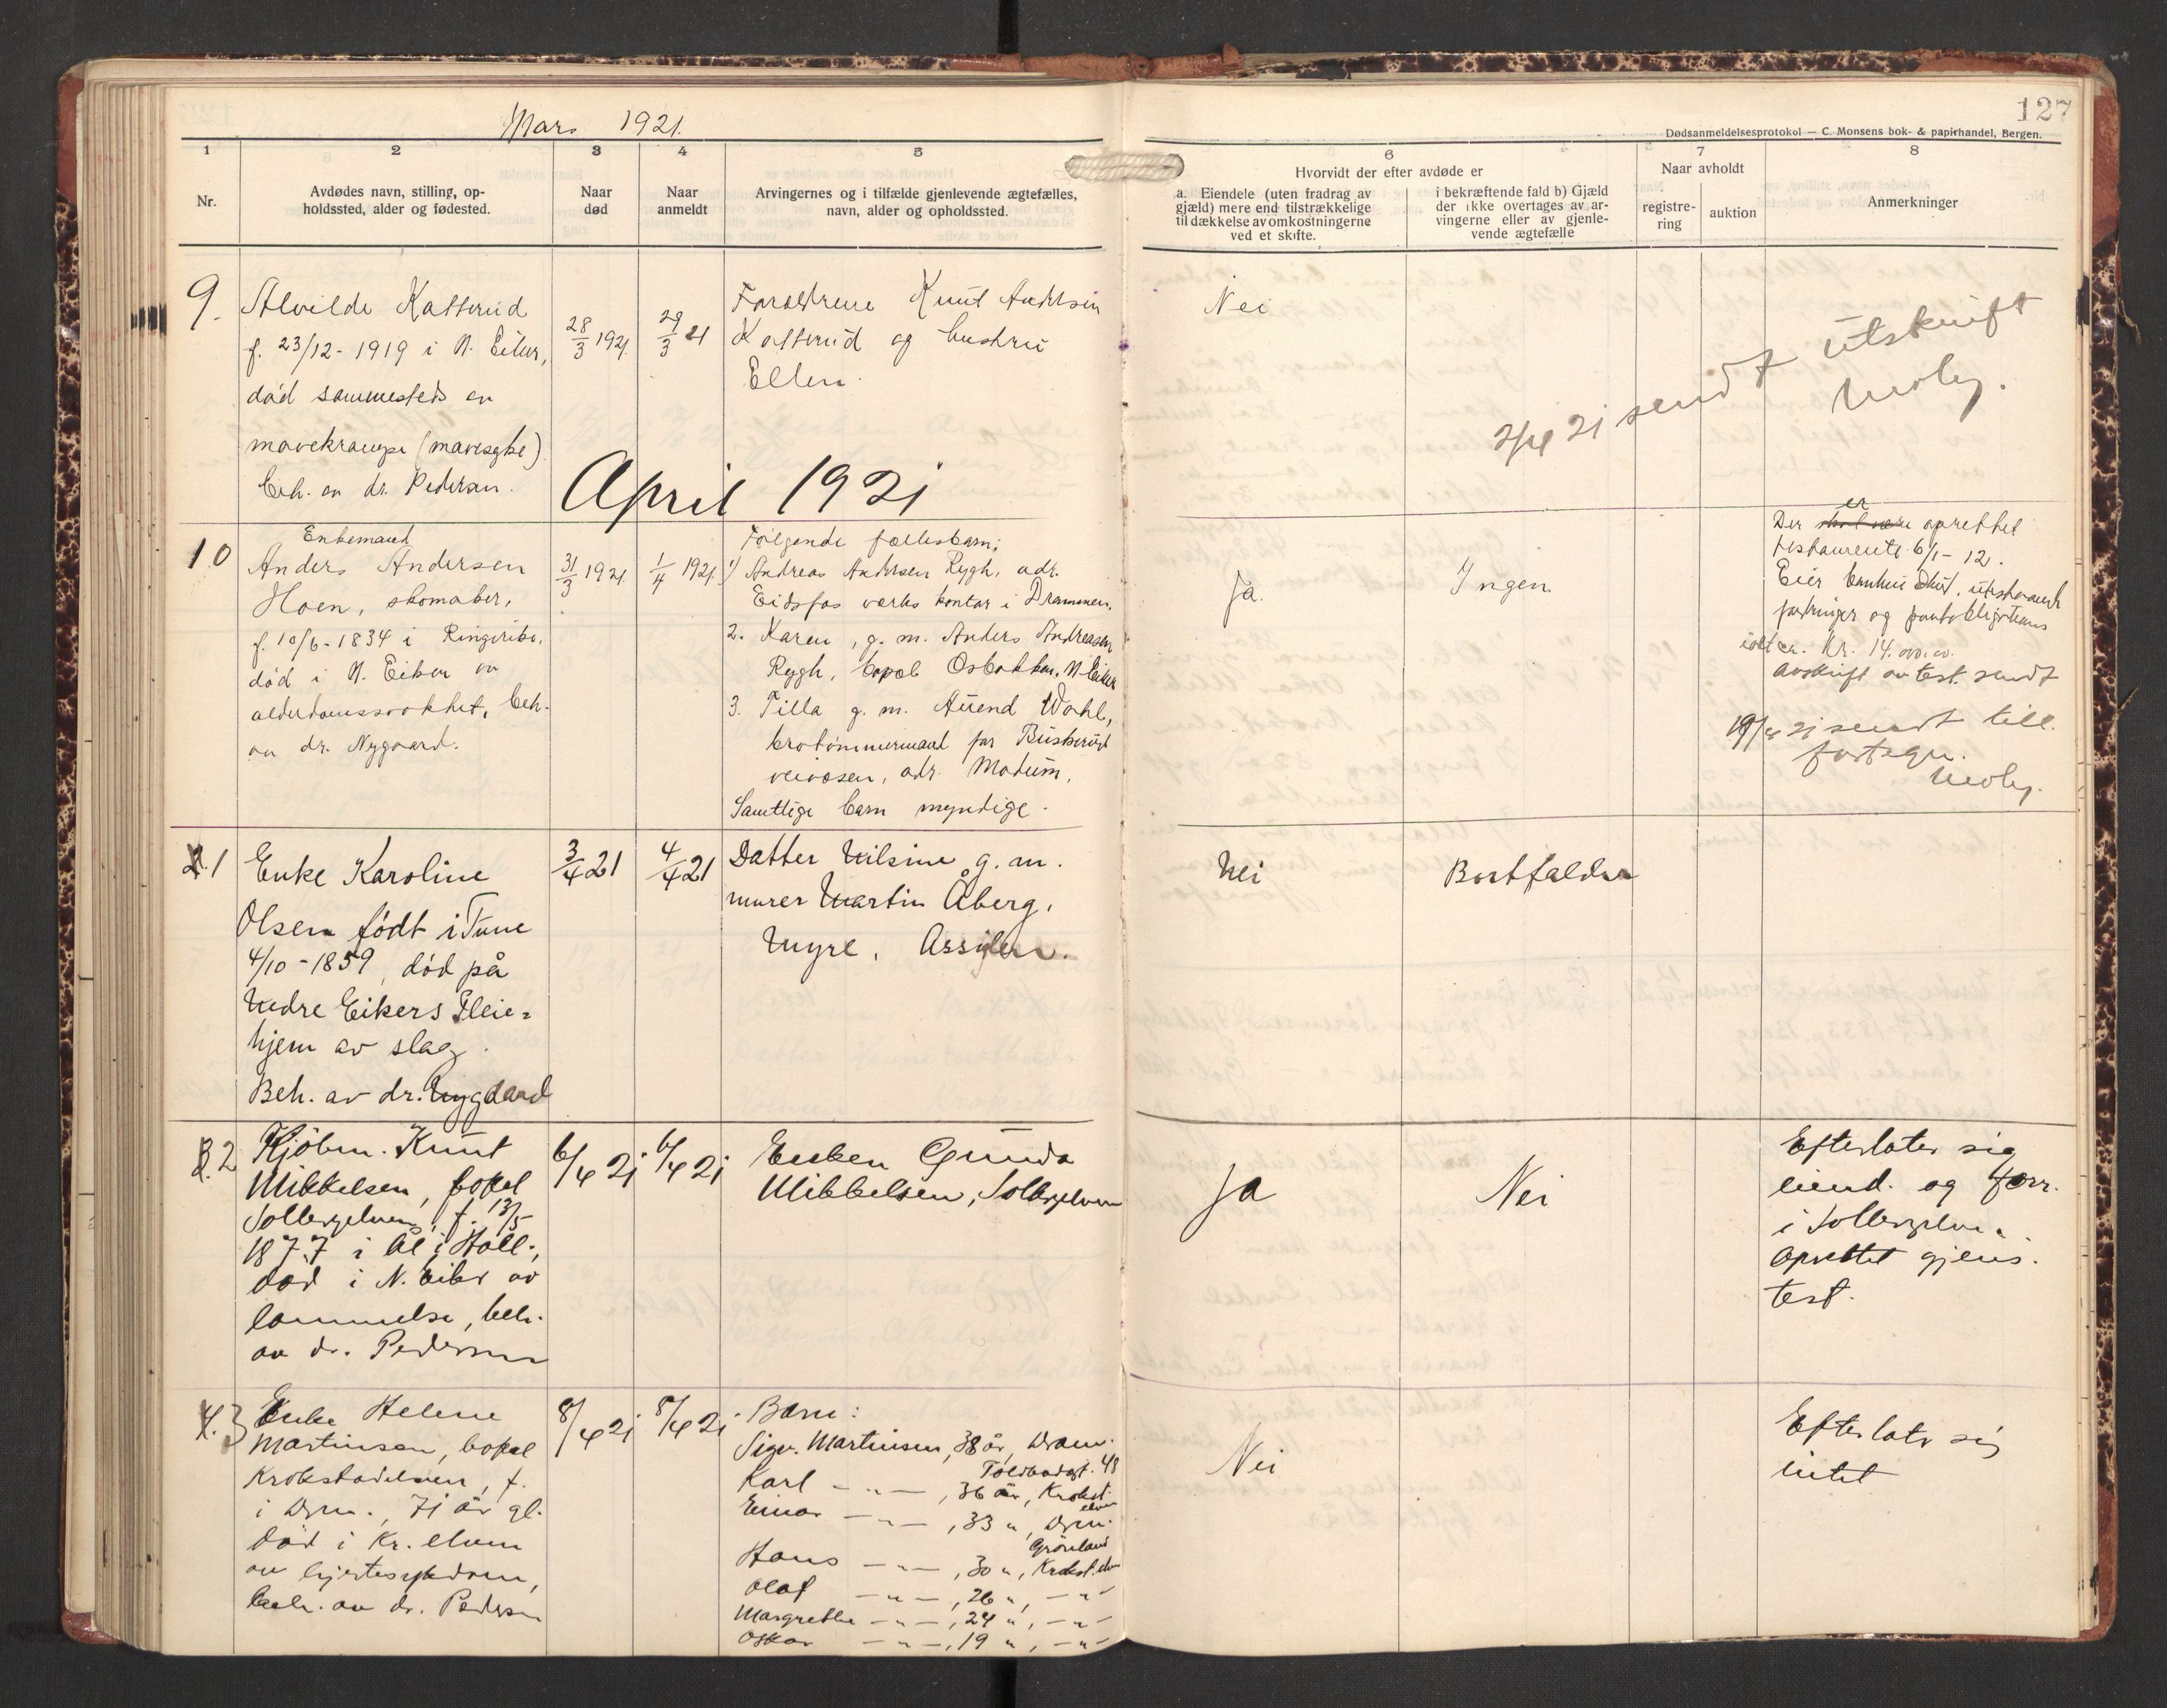 Mars 1921.
127
Dødsanmeldelsesprotokol — C. Monsens bok- & papirhandel, Bergen.
1
2
3
4
5
6
7
8
Nr.
Avdødes navn, stilling, op-
holdssted, alder og fødested.
Naar
død
Naar
anmeldt
Arvingernes og i tilfælde gjenlevende ægtefælles,
navn, alder og opholdssted.
Hvorvidt der efter avdøde er
a. Eiendele (uten fradrag av
gjæld) mere end tilstrækkelige
til dækkelse av omkostningerne
ved et skifte.
i bekræftende fald b) Gjæld
der ikke overtages av ar-
vingerne eller av gjenle-
vende ægtefælle
Naar avholdt
registre-
ring
auktion
Anmerkninger
9.
Alvilde Katterud
f. 23/12-1919 i N. Eiker,
død sammesteds av
mavekrampe (mavesyke)
Beh. av dr. Pedersen.
28/3 1921.
29/3 21
Forældrene Knut Andersen
Katterud og hustru
Ellen.
Nei
21 sendt utskrift
April 1921
10
Enkemand
Anders Andersen
Hoen, skomaker,
f. 10/6-1834 i Ringerike,
død i N. Eiker av
alderdomssvakhet, beh.
av dr. Nygaard.
31/3 1921.
1/4 1921.
Følgende fællesbarn:
1) Andreas Andersen Rygh, adr.
Eidsfos verks kontor i Drammen.
2. Karen, g. m. Anders Andreasen
Rygh, bopæl Osbakken, N. Eiker
3. Tilla g. m. Avend Wahl,
brotømmermand for Buskerud
veivæsen, adr. Modum.
Samtlige barn myndige.
Ja.
Ingen.
er
Der skal være oprettet
testamente 6/1-12.
Eier
og
ialt ca. kr. 14.000.00.
avskrift av test. sendt
19/4 21 sendt till.
fortegn.
11
Enke Karoline
Olsen født i Tune
4/10-1859, død på
Nedre Eikers Pleie-
hjem av slag.
Beh. av dr. Nygaard
3/4 21
4/4 21
Datter Nilsine, g. m.
murer Martin Åberg,
Myre, Assiden.
Nei
Bortfalder
2
Kjøbm. Knut
Mikkelsen, bopæl
Solbergelven, f. 13/5
1877 i Ål i Hall.,
død i N. Eiker av
lammelse, beh.
av dr. Pedersen
6/4 21
6/4 21
Enken Gunda
Mikkelsen, Solbergelven
Ja
Nei
Efterlater sig
eiend. og forr.
i Solbergelven.
Oprettet gjens.
test.
3
Enke Helene
Martinsen, bopæl
Krokstadelven, f.
i Drm., 71 år gl.
død i Kr. elven
av hjertesykdom,
beh. av dr. Pedersen
8/4 21
8/4 21
Barn:
Sigv. Martinsen, 38 år, Dram.
Toldbodgt. 48
Karl — " —, 36 år, Krokst.
elven
Einar — " —, 33 ", Drm.
Grønland
Hans — " —, 30 ", Krokst.elv
Olaf — " —, 26 ", — " —
Margrethe — " —, 24 ", — " —
Oskar — " —, 19 ", — " —
Nei
Efterlater sig
intet